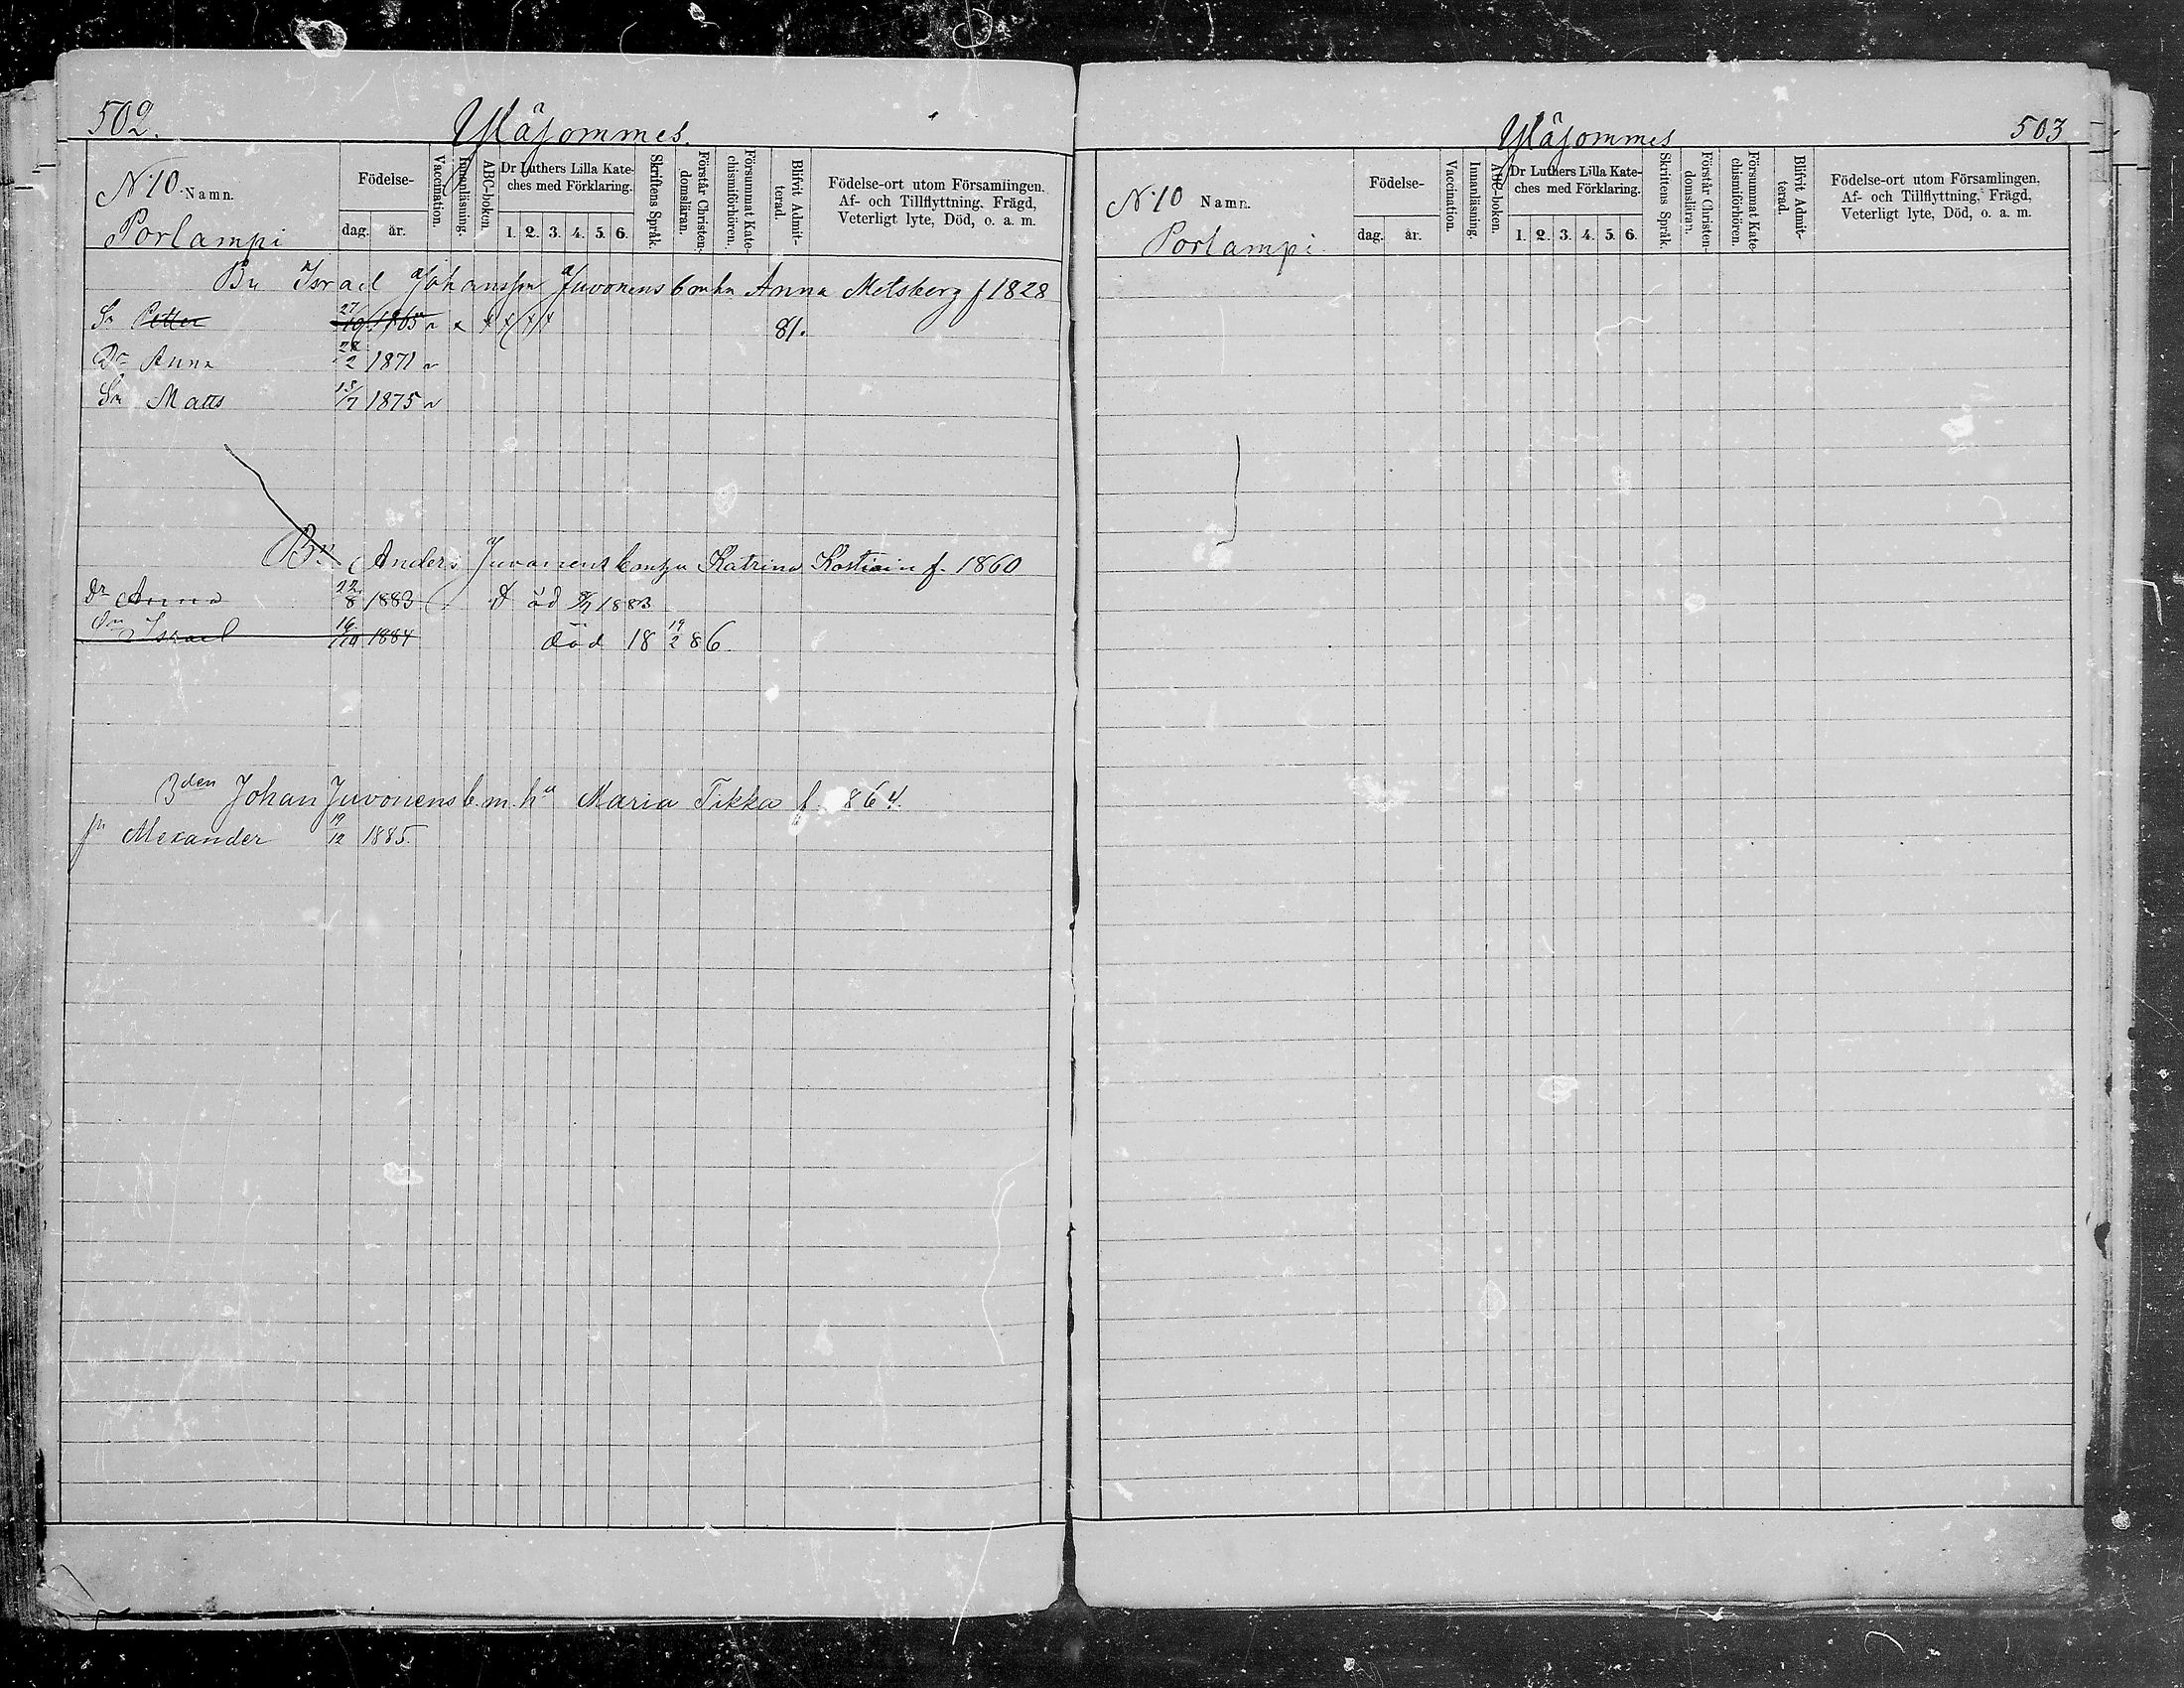 502.
Yläsommes.
N:10. Namn.
Porlampi
Födelse-
dag. år.
Vaccination.
Innanläsning.
ABC-boken.
Dr Luthers Lilla Kate-
ches med Förklaring.
1. 2. 3. 4. 5. 6.
Skriftens Språk.
Förstår Christen-
domsläran.
Försummat Kate-
chismiförhören.
Blifvit Admit-
terad.
Födelse-ort utom Församlingen.
Af- och Tillflyttning. Frägd,
Veterligt lyte, Död, o. a. m.
Bn Israel Johansson Juvonens b m hu Anna Metsberg f 1828
Sn Petter 27/10 1865 81.
Dr Anna 2 1871
Sn Matts 18/7 1875
Bn Anders Juvonens b m hu Katrina Kostiain f. 1860
Dr Anna 22/8 1883 död 1883
Sn Israel 16/10 1884 död 18 19/2 86.
Bden Johan Juvonens b. m. hu Maria Tikka f. 864.
sn Alexander 19/12 1885.
Yläsommes
503
N:10 Namn.
Porlampi
Födelse-
dag. år.
Vaccination.
Innanläsning.
ABC-boken.
Dr Luthers Lilla Kate-
ches med Förklaring.
1. 2. 3. 4. 5. 6.
Skriftens Språk.
Förstår Christen-
domsläran.
Försummat Kate-
chismiförhören.
Blifvit Admit-
terad.
Födelse-ort utom Församlingen.
Af- och Tillflyttning, Frägd,
Veterligt lyte, Död, o. a. m.